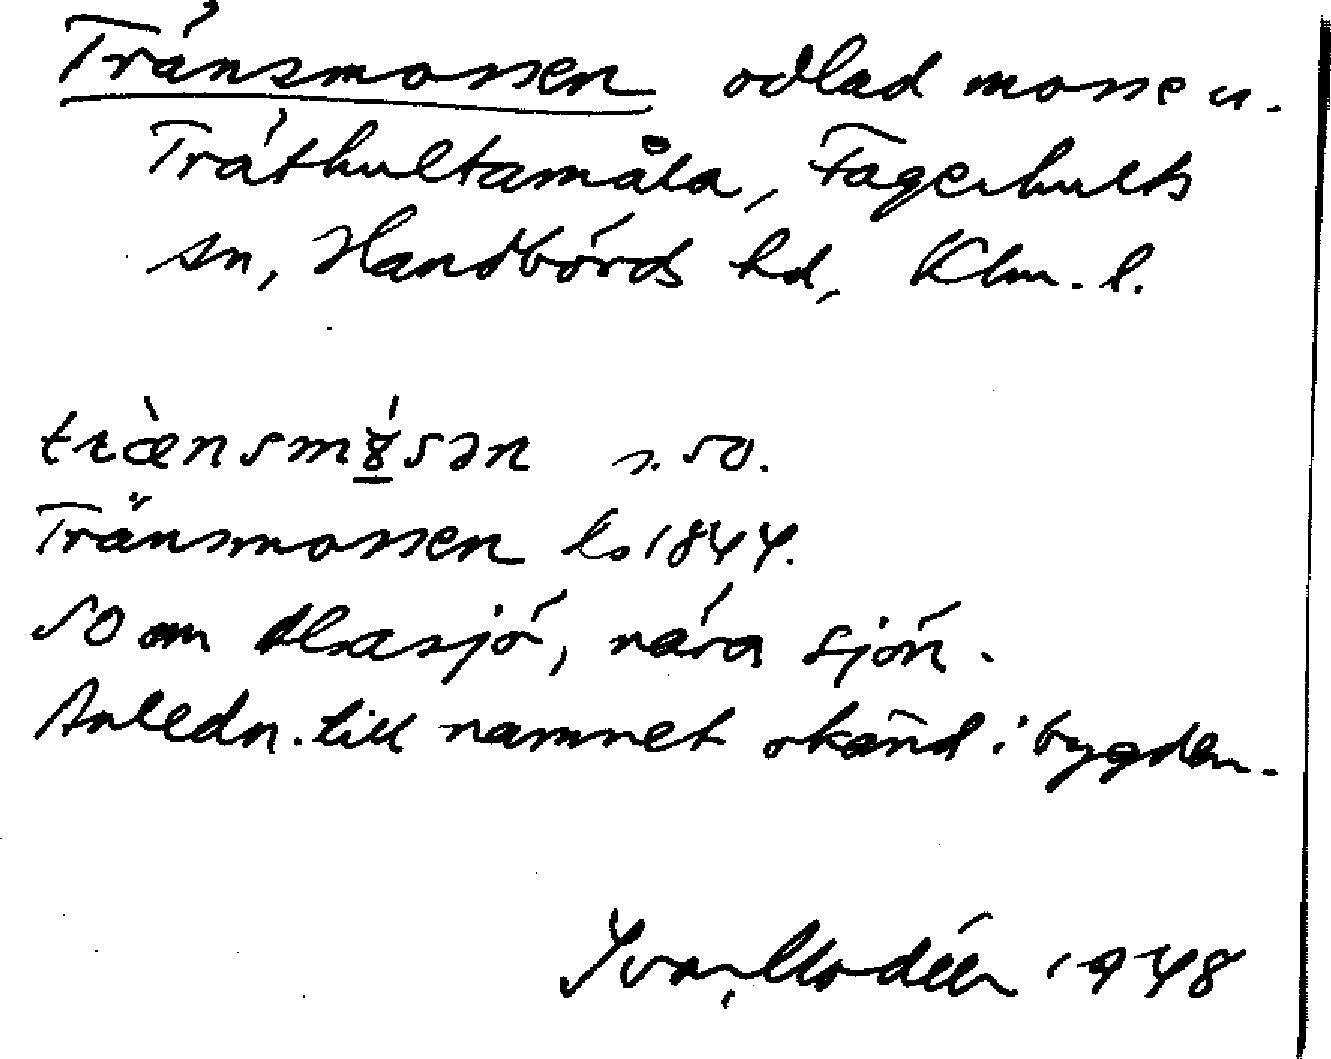 Tränsmossen odlad mosse u.
Träthultamåla, Fagerhults
sn, Handbörds hd, Klm. l.
trænsmɤ̲sən s. 50.
Tränsmossen ls 1844.
SO om Alsasjö, nära sjön.
Anledn. till namnet okänd i bygden.
Ivar Modéer 1948